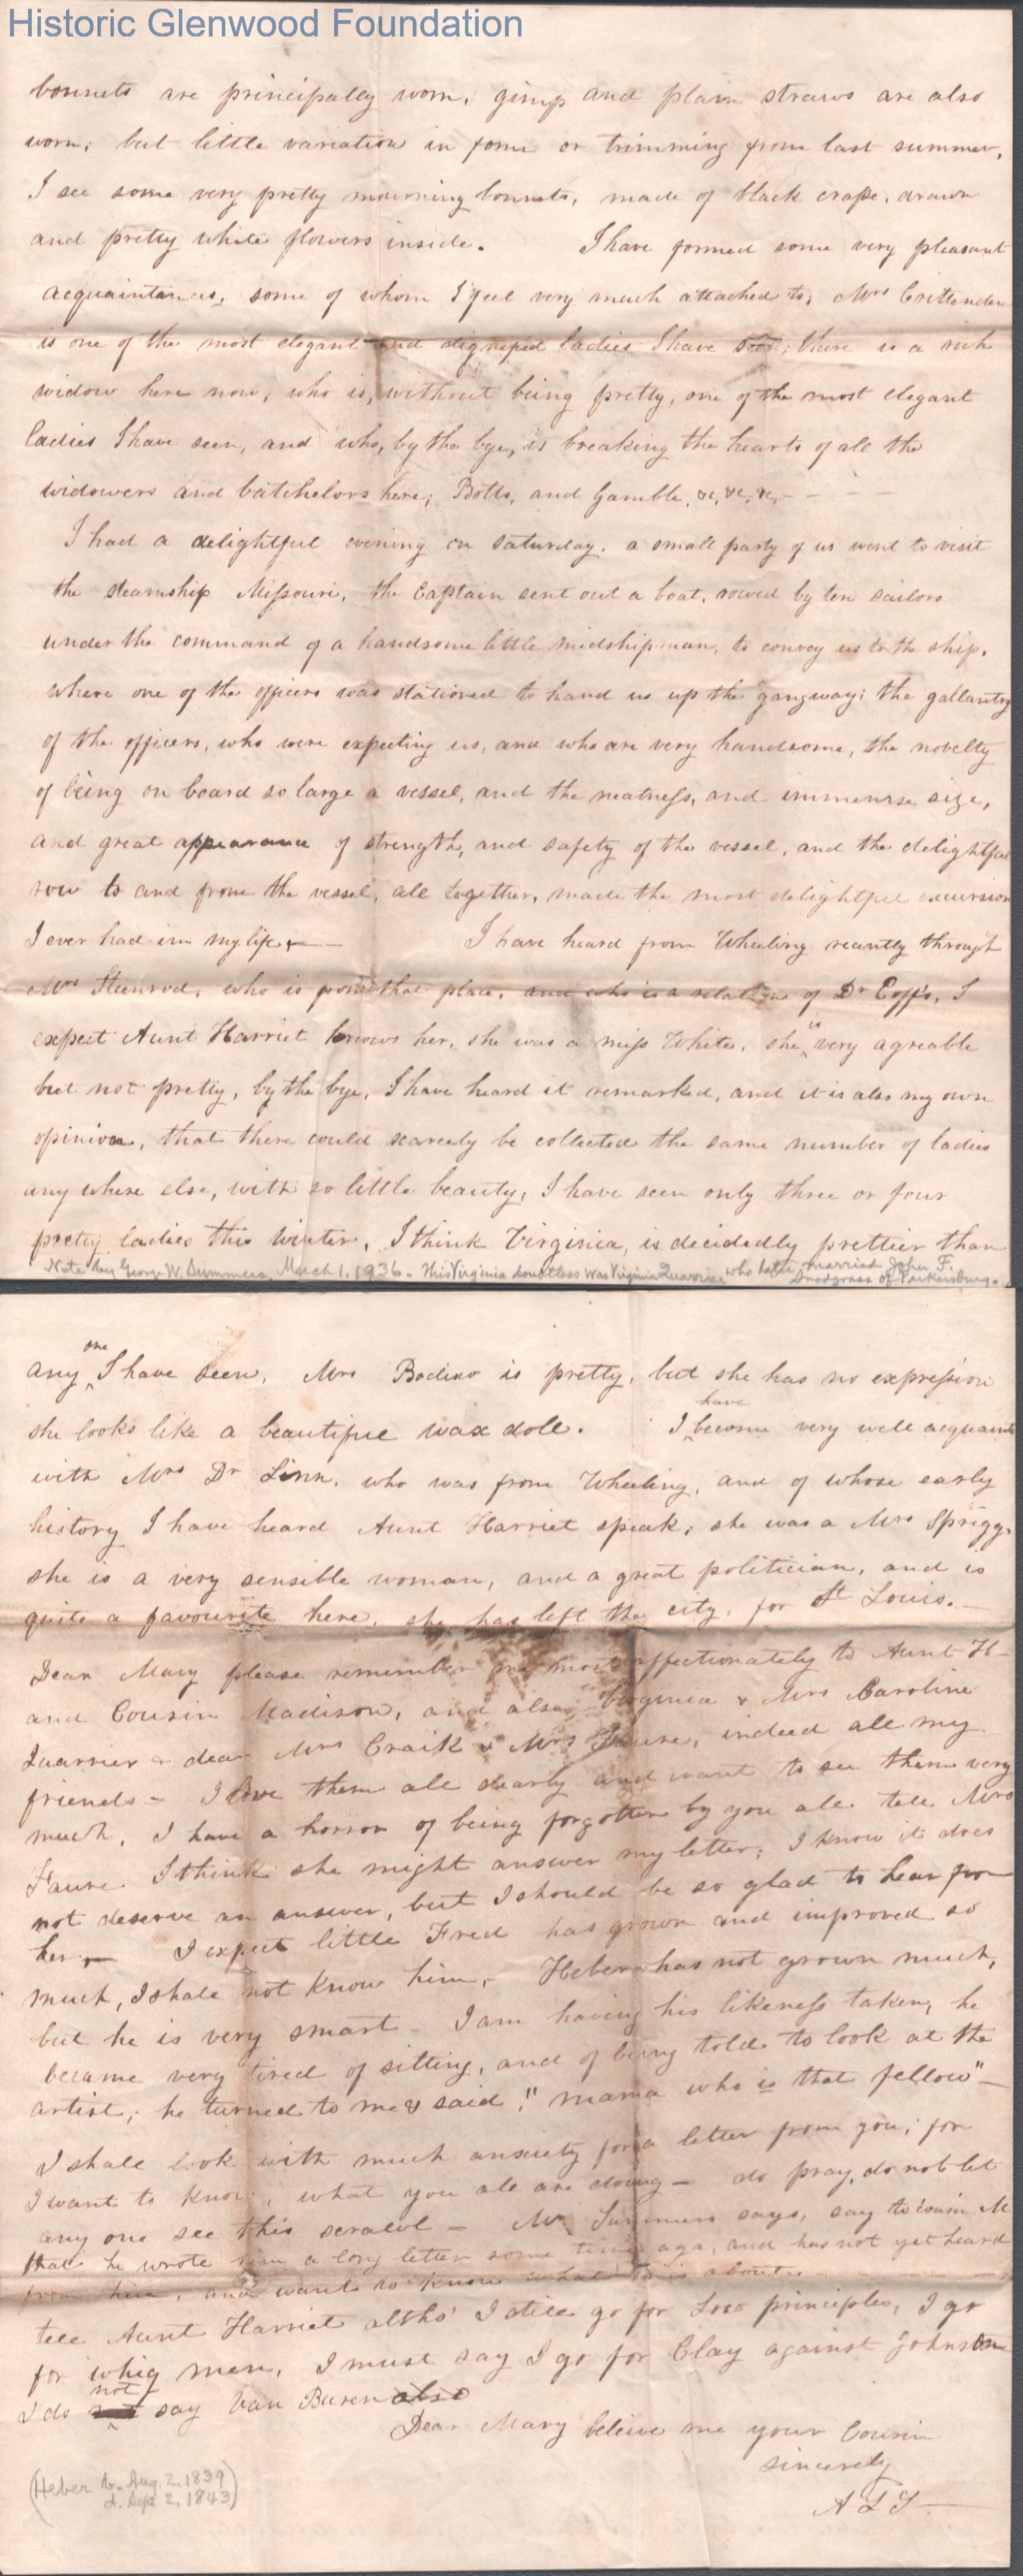 Historic Glenwood Foundation
bonnets are principally worn, gimp and plain straws are also
worn; but little variation in form or trimming from last summer,
I see some very pretty mourning bonnets, made of black crape, drawn
and pretty white flowers inside. I have formed some very pleasant
acquaintances, some of whom I feel very much attached to; Mrs Crittenden
is one of the most elegant and dignified ladies I have seen; there is a rich
widow here now, who is, without being pretty, one of the most elegant
ladies I have seen, and who, by the bye, is breaking the hearts of all the
widowers and batchelors here; Botts, and Gamble, &c, &c, &c, - - - -
I had a delightful evening on saturday. a small party of us went to visit
the steamship Missouri, the Captain sent out a boat, rowed by ten sailors
under the command of a handsome little midshipman, to convey us to the ship,
where one of the officers was stationed to hand us up the gangway; the gallantry
of the officers, who were expecting us, and who are very handsome, the novelty
of being on board so large a vessel, and the neatness, and immense size,
and great appearance of strength, and safety of the vessel, and the delightful
row to and from the vessel, all together, made the most delightful excursion
I ever had in my life. — I have heard from Wheeling recently through
Mrs Steenrod, who is from that place, and who is a relative of Dr Eoff's, I
expect Aunt Harriet knows her, she was a miss White, she is very agreable
but not pretty, by the bye, I have heard it remarked, and it is also my own
opinion, that there could scarcely be collected the same number of ladies
any where else, with so little beauty; I have seen only three or four
pretty ladies this winter, I think Virginia, is decidedly prettier than
Note by George W. Summers, March 1, 1936. This Virginia doubtless was Virginia Quarrier who later married John F.
Snodgrass of Parkersburg.
any one I have seen, Mrs Bodisco is pretty, but she has no expression
she looks like a beautiful wax doll. I have become very well acquaint
with Mrs Dr Linn, who was from Wheeling, and of whose early
history I have heard Aunt Harriet speak; she was a Mrs Sprigg,
she is a very sensible woman, and a great politician, and is
quite a favourite here. she has left the city, for St Louis. —
Dear Mary please remember me most affectionately to Aunt H—
and Cousin Madison, and also Virginia & Mrs Caroline
Quarrier & dear Mrs Craik & Mrs Faure, indeed all my
friends — I love them all dearly and want to see them very
much, I have a horror of being forgotten by you all. tell Mrs
Faure I think she might answer my letter; I know it does
not deserve an answer, but I should be so glad to hear from
her. — I expect little Fred has grown and improved so
much, I shall not know him, Heber has not grown much,
but he is very smart — I am having his likeness taken, he
became very tired of sitting, and of being told to look at the
artist; he turned to me & said "mama who is that fellow" —
I shall look with much anxiety for a letter from you; for
I want to know, what you all are doing — do pray, do not let
any one see this scrawl — Mr Summers says, say to cousin M
that he wrote him a long letter some time ago, and has not yet heard
from him, and wants to know what he is about.
tell Aunt Harriet altho' I still go for Loco principles, I go
for whig men, I must say I go for Clay against Johnson
I do not say Van Buren also
Dear Mary believe me your Cousin
sincerely
A L S —
(Heber b. Aug. 2. 1839
d. Sep 2, 1843)